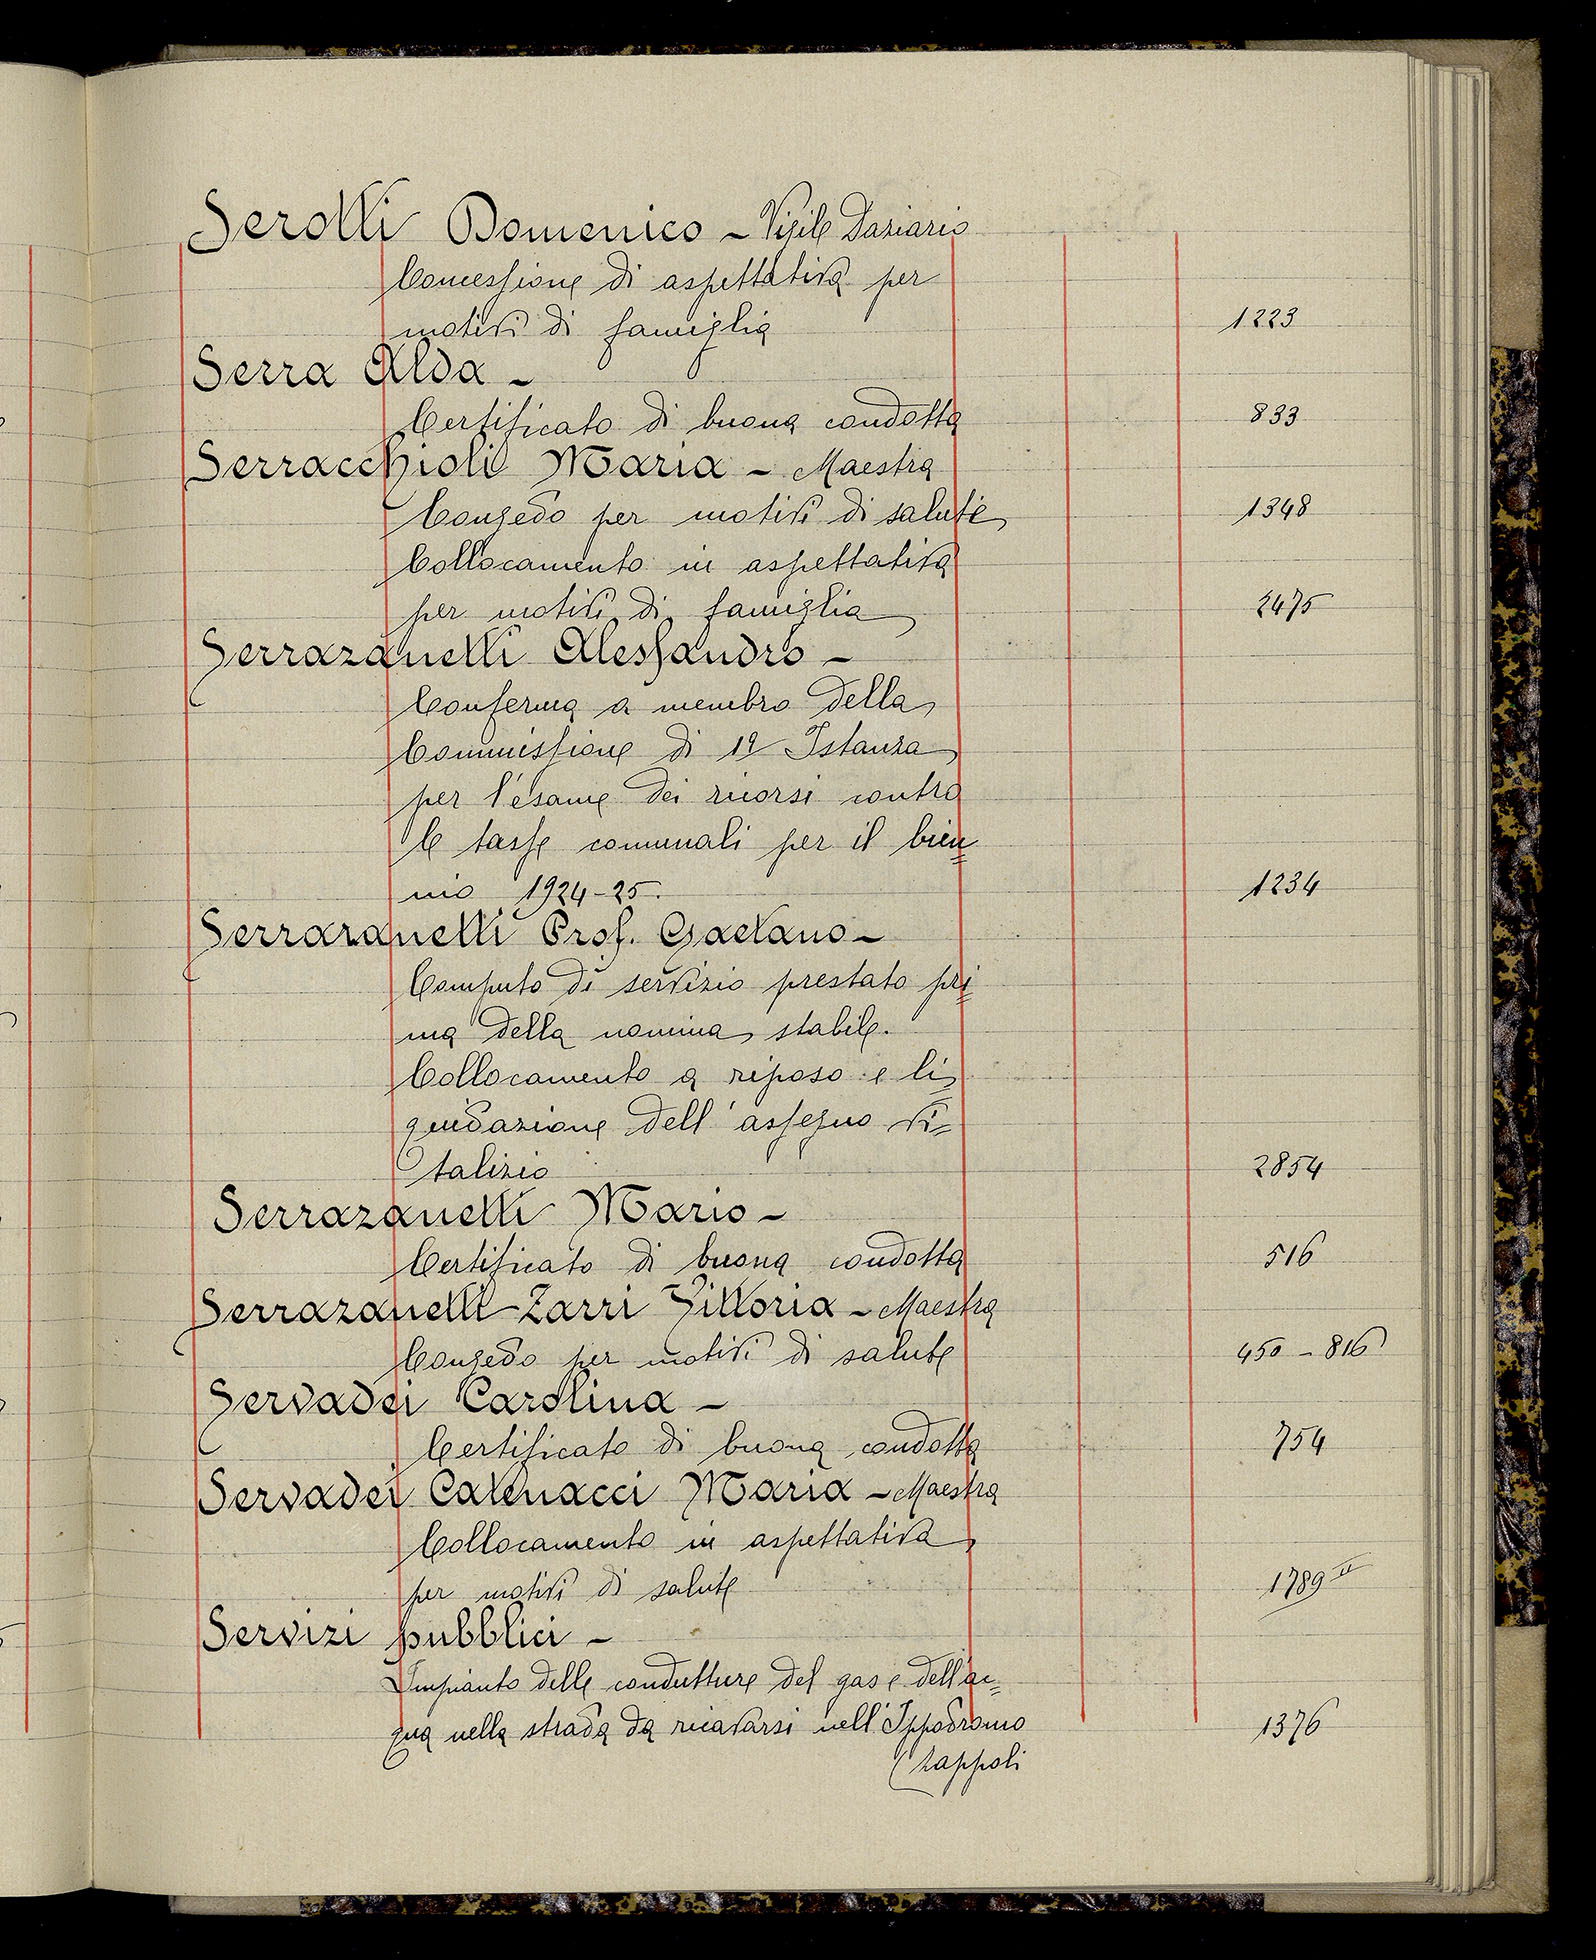 Serotti Domenico - Vigile Daziario
Concessione di aspettativa per
motivi di famiglia 1223
Serra Alda -
Certificato di buona condotta 833
Serracchioli Maria - Maestra
Congedo per motivi di salute 1348
Collocamento in aspettativa
per motivi di famiglia 2475
Serrazanetti Alessandro -
Conferma a membro della
Commissione di 1ª Istanza
per l'esame dei ricorsi contro
le tasse comunali per il bien=
nio 1924-25. 1234
Serrazanetti Prof. Gaetano -
Computo di servizio prestato pri=
ma della nomina stabile.
Collocamento a riposo e li=
quidazione dell'assegno vi=
talizio 2854
Serrazanetti Mario -
Certificato di buona condotta 516
Serrazanetti-Zarri Vittoria - Maestra
Congedo per motivi di salute 450 - 816
Servadei Carolina -
Certificato di buona condotta 754
Servadei Catenacci Maria - Maestra
Collocamento in aspettativa
per motivi di salute 1789 II
Servizi pubblici -
Impianto delle condutture del gas e dell'ac=
qua nella strada da ricavarsi nell'Ippodromo 1376
(Zappoli